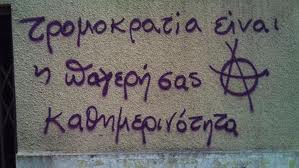 τρομοκρατία είναι
η παγερή σας Ⓐ
καθημερινότητα